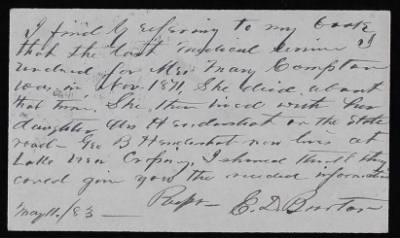 I find by refering to my book
that the last medical service I
rendered for Mrs Mary Compton
was in Nov. 1871, She died about
that time. She then lived with her
daughter Mrs Hendershot on the State
road - Geo B Hendershot now lives at
I should think they
could give you the needed information
Respt E. D. Burton
May 11/83